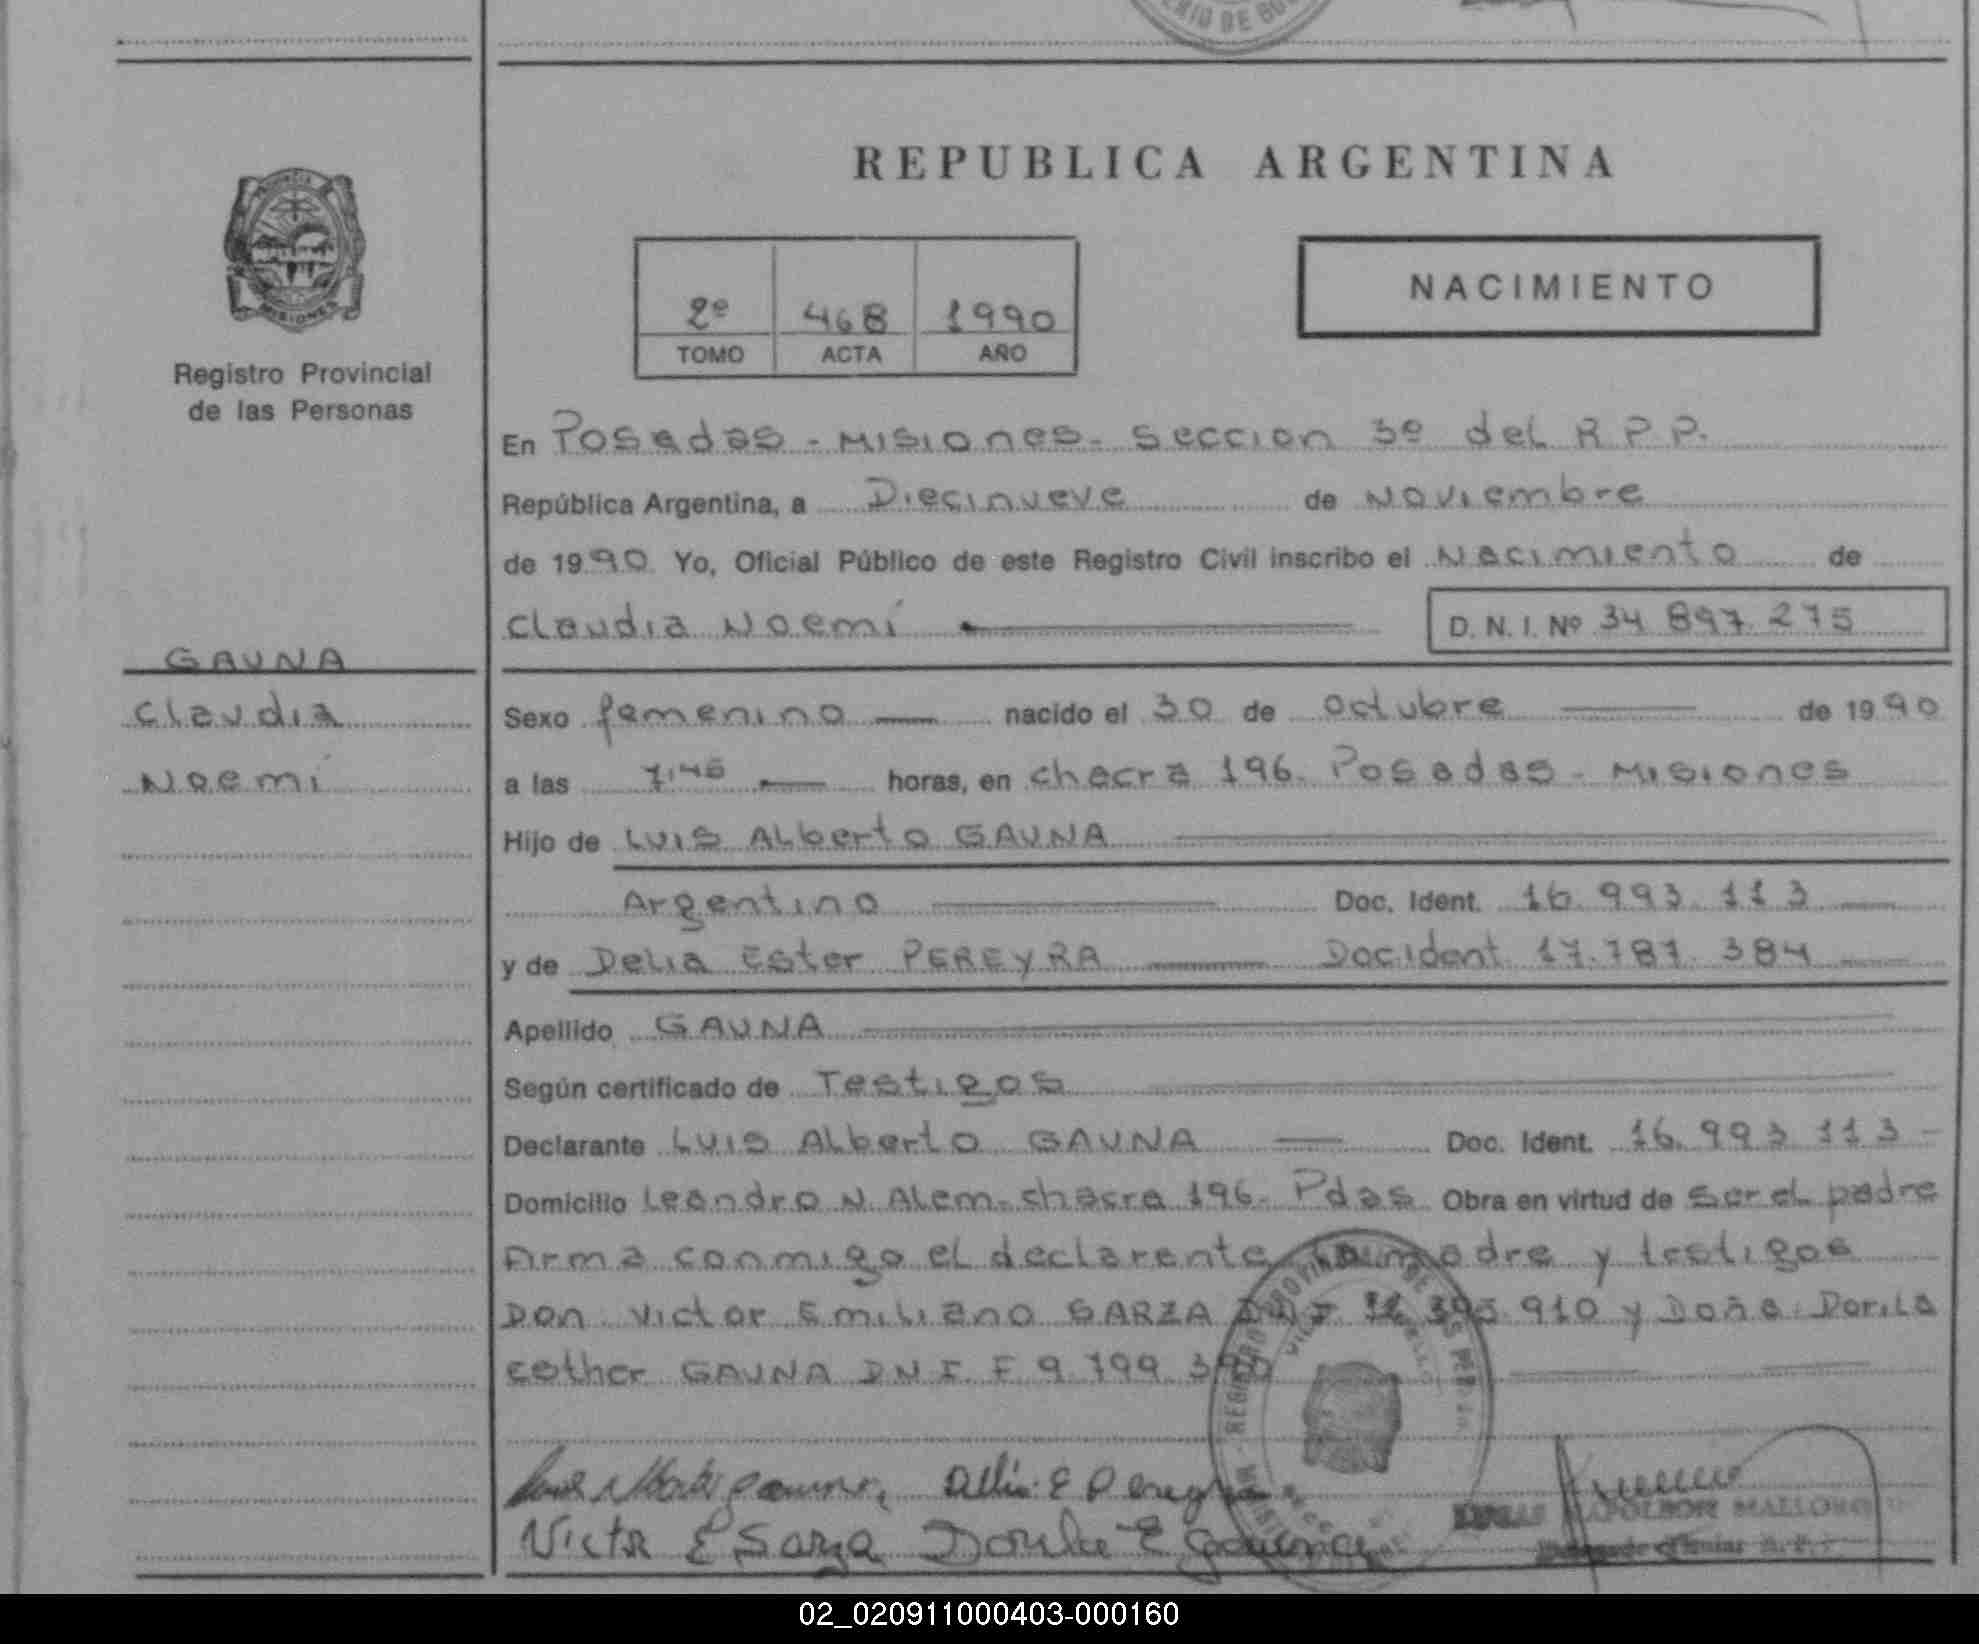 ERIO DE GO
REPUBLICA ARGENTINA
NACIMIENTO
2º 468 1990
TOMO ACTA AÑO
MISIONES
Registro Provincial
de las Personas
En Posadas - Misiones - seccion 3º del R P P.
República Argentina, a Diecinueve de Noviembre
de 1990 Yo, Oficial Público de este Registro Civil inscribo el Nacimiento de
Claudia Noemí D. N. I. Nº 34 897.275
GAUNA
Claudia
Noemí
Sexo femenino nacido el 30 de octubre de 1990
a las 7,45 horas, en chacra 196. Posadas - Misiones
Hijo de Luis Alberto GAUNA
Argentino Doc. Ident. 16.993.113
y de Delia Ester PEREYRA Doc ident 17.787.384
Apellido GAUNA
Según certificado de Testigos
Declarante Luis Alberto GAUNA Doc. Ident. 16.993.113 -
Domicilio Leandro N. Alem - chacra 196 - Pdas Obra en virtud de ser el padre
firma conmigo el declarante, la madre y testigos
Don Victor Emiliano SARZA 910 y Doña Dorila
Esther GAUNA D N I. F 9.799.
Luis Alberto Gauna, Delia E Pereyra
Victor E Sarza Dorila E Gauna
NAPOLEON
02_020911000403-000160